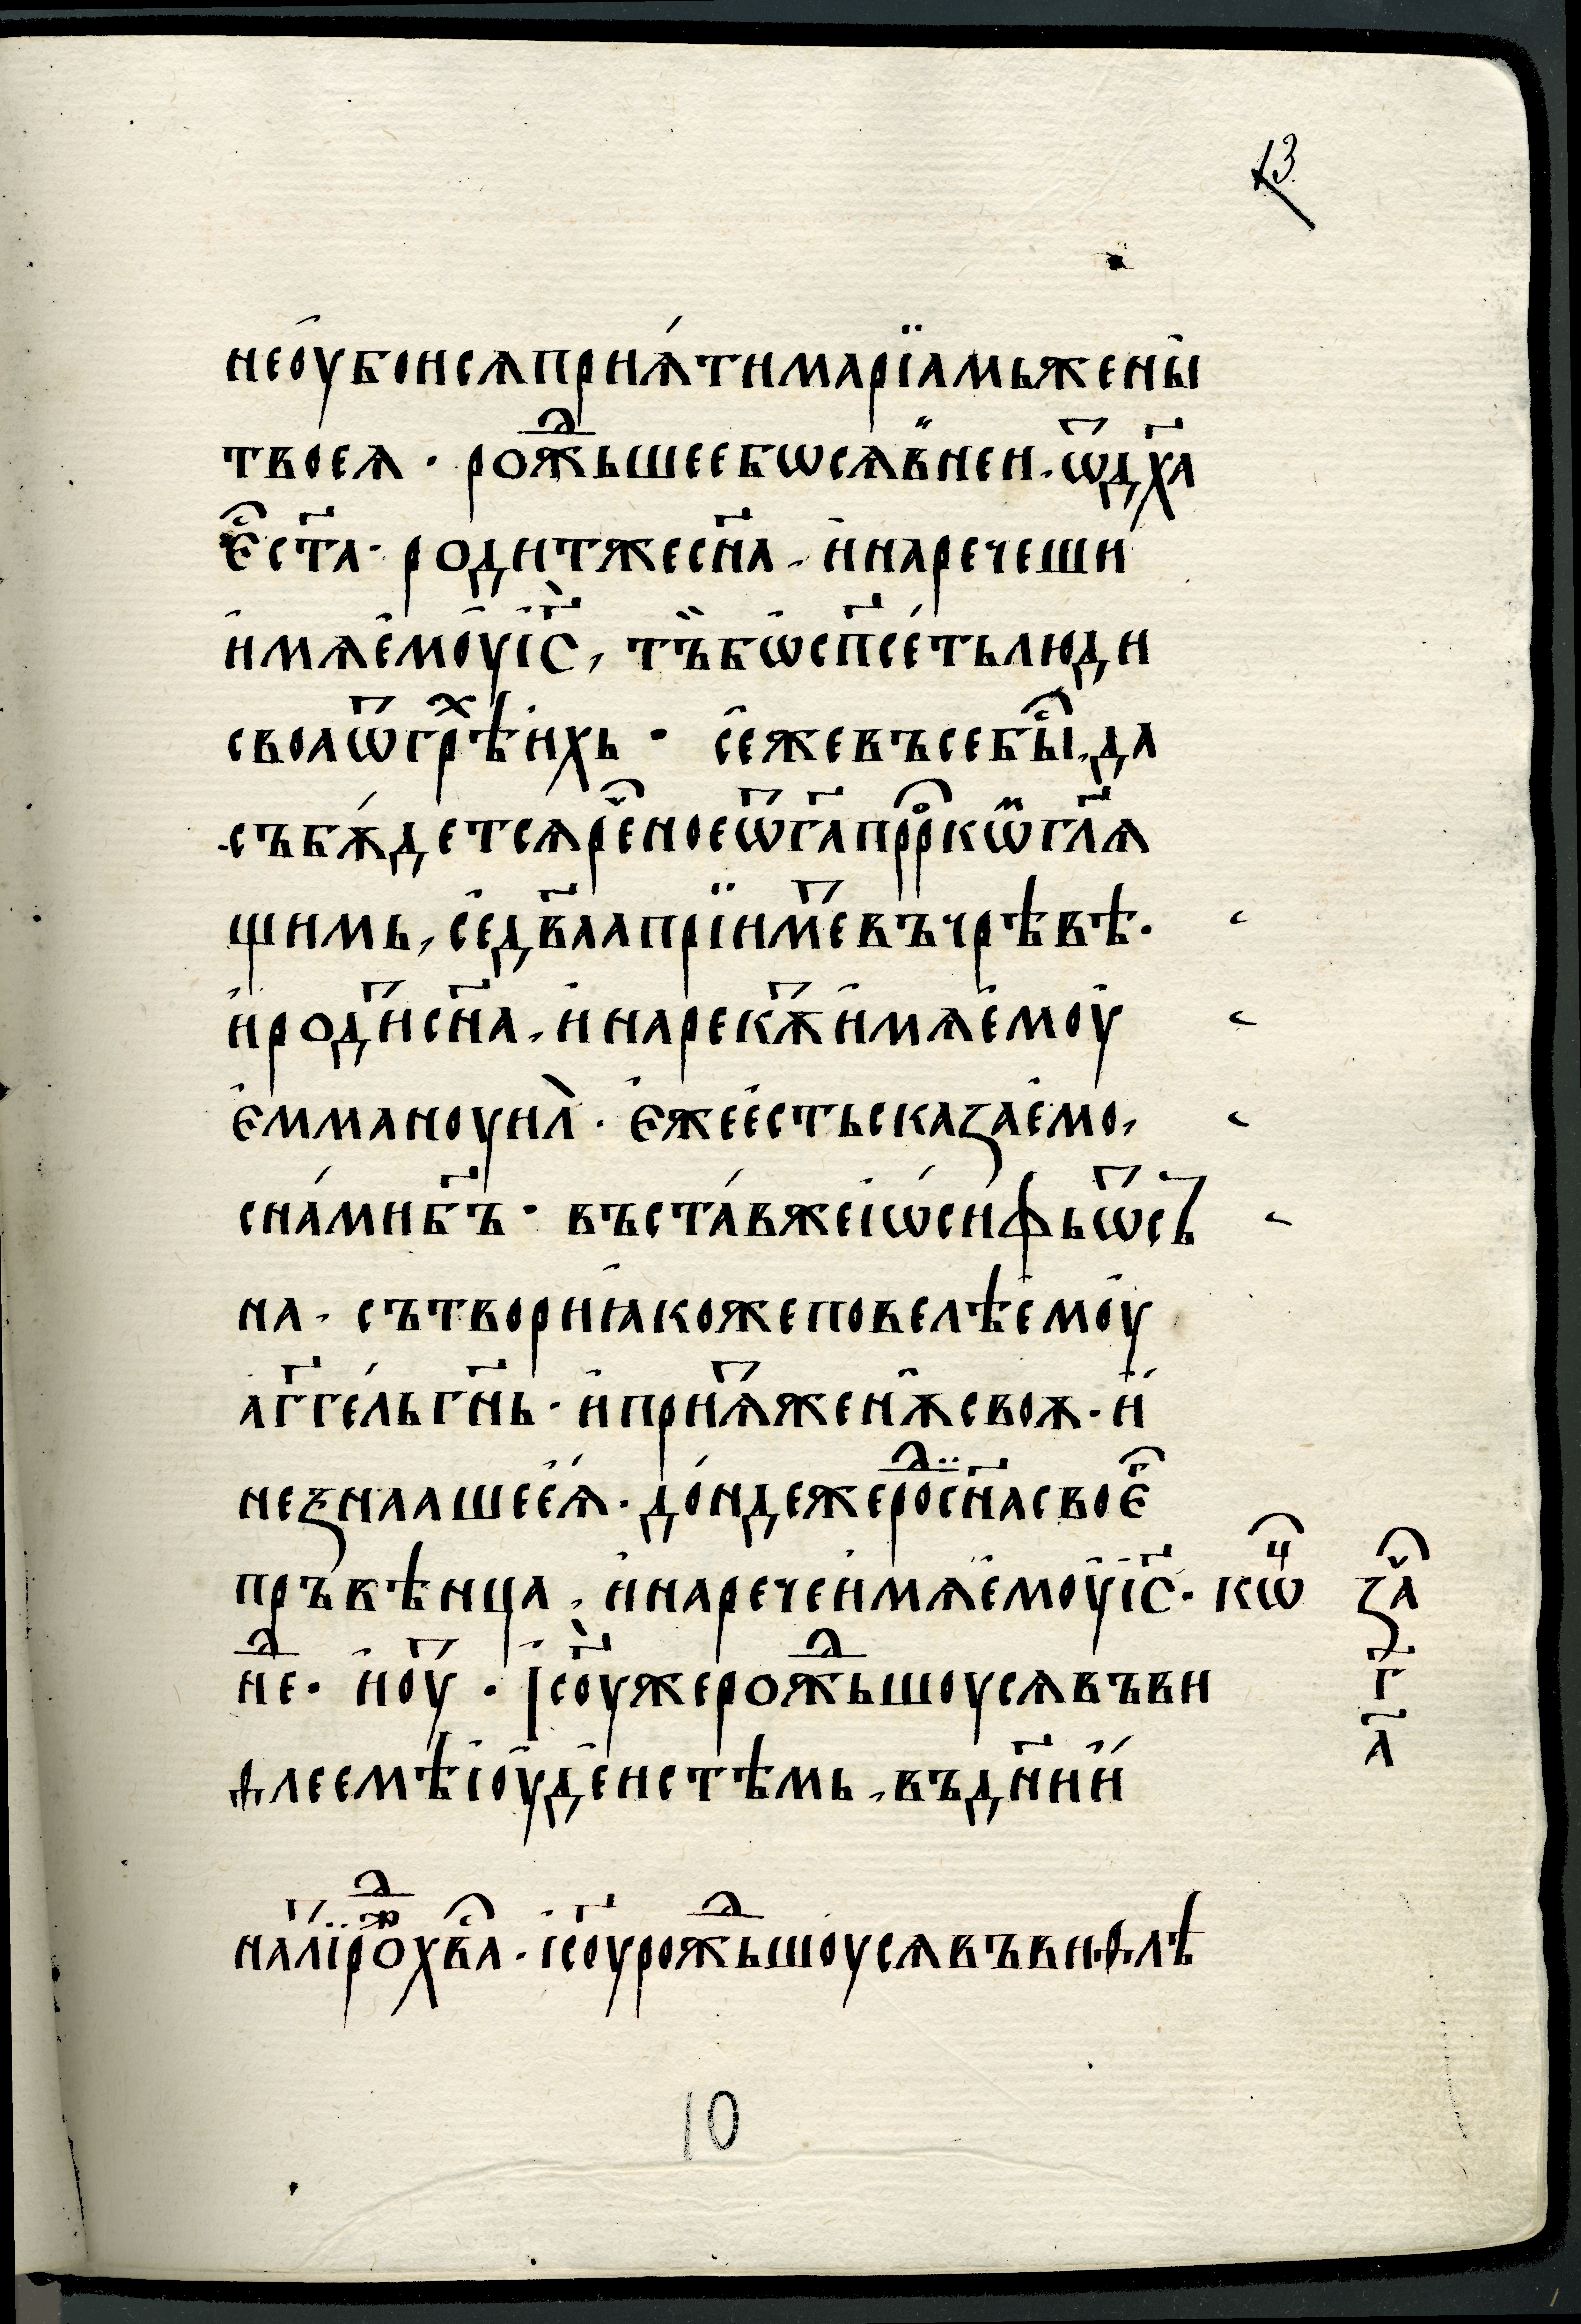 13
не оубоисѧ прїѧти марїамь жены
твоеѧ · рождьшее бѡ сѧ в̾ неи · ѿ дх҃а
є҆ст҃а · родит же сн҃а · и҆ наречеши
и҆мѧ є҆моу і҆с҃ · тъ бѡ сп҃сеть люди
своꙗ ѿ грѣхъ и҆хь · се же въсе быс · да
събѫдетсѧ рєное ѿ г҃а прⷪ҇ркѡ гл҃ѧ
щимь · се дв҃аа прїиме въ чрѣвѣ ·
и҆ роди сн҃а · и҆ нарекѫ и҆мѧ є҆моу
є҆ммануил · є҆же єсть сказаємо ·
с нами б҃ъ · въстав же іѡсифь ѿ съ
на · сътвори ꙗкоже повелѣ є҆моу
аг҃гель гн҃ь · и҆ приѧ женѫ своѫ · и҆
не знааше еѧ · дондеже ро сн҃а своє
пръвѣнца · и҆ нарече и҆мѧ є҆моу і҆с҃ · кѡⷰ҇
не · и҆ноу · І҆соу же рождьшоусѧ въ ви
ѳлеемѣ іоудеистѣмь · въ дн҃ии
за
г
а҃
на лі рож хв҃а · і҆соу рождьшоусѧ въ виѳлѣ
10